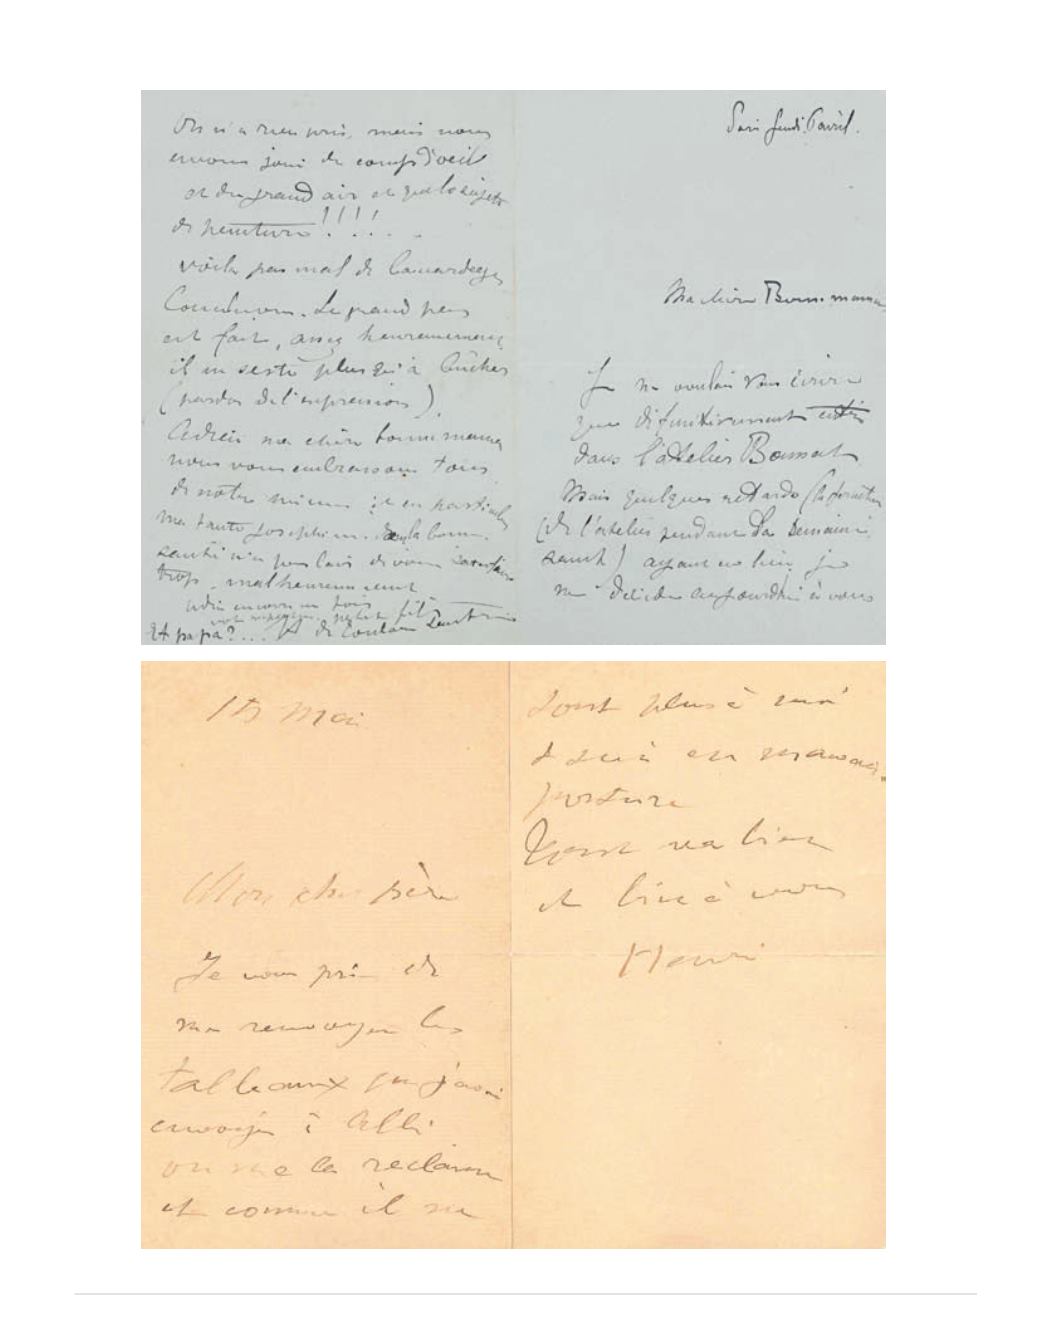 Paris Jeudi 6 avril.
Ma chère Bonne maman
Je ne voulais vous écrire
que définitivement
dans l'atelier Bonnat
Mais quelques retards (la fermeture
(de l'atelier pendant la Semaine
sainte) ayant eu lieu, je
me décide aujourd'hui à vous
On n'a rien pris, mais nous
avons joui du coup d'oeil
et du grand air et quels sujets
de peinture!!!!
Voila pas mal de
Concluons. Le grand pas
est fait, assez heureusement
il ne reste plus qu'à bûcher
(pardon de l'expression).
Adieu ma chère bonne maman
nous vous embrassons tous
de notre mieux et en particulier
ma tante Joséphine. la bonne
santé n'a pas l'air de vouloir
trop, malheureusement
adieu encore
votre petit fils
Et papa?... H de Toulouse Lautrec
15 Mai
Mon cher père
Je vous prie de
me renvoyer les
tableaux que j'avais
envoyés à Albi
on me les réclame
et comme il ne
sont plus à moi
je suis en mauvaise
posture
Tout va bien
et bien à vous
Henri